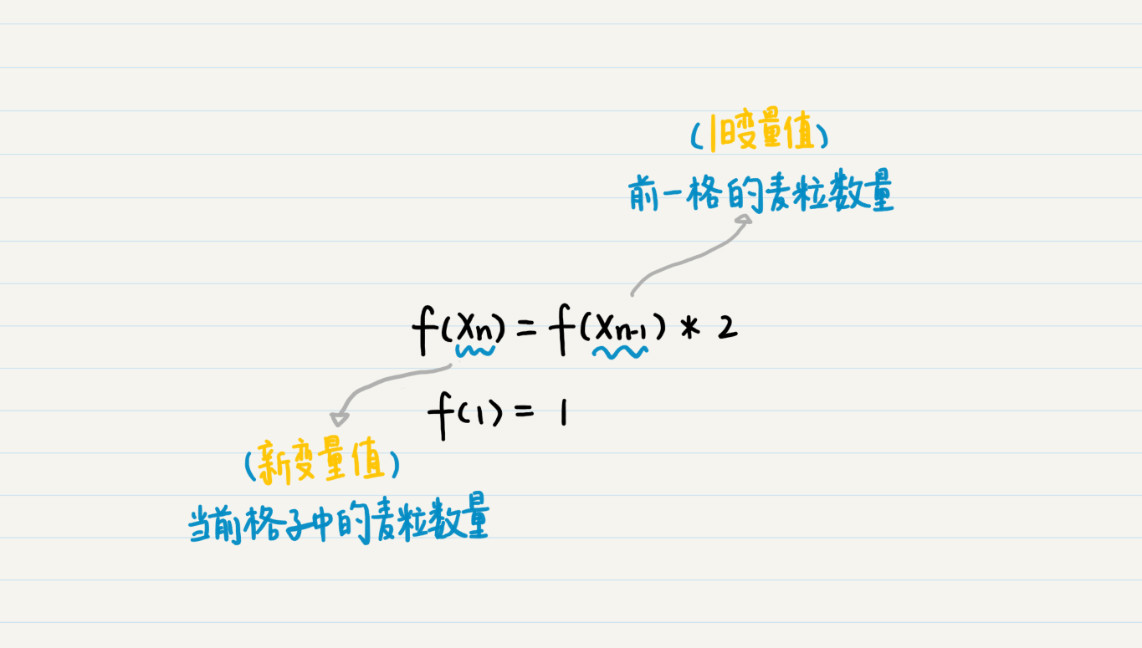 (旧变量值)
前一格的麦粒数量
f(Xn) = f(Xn-1) * 2
f(1) = 1
(新变量值)
当前格子中的麦粒数量